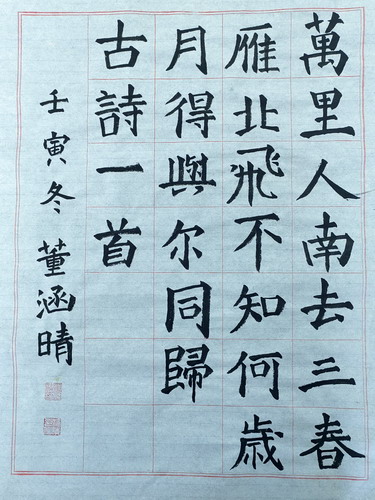 萬里人南去三春
雁北飛不知何歲
月得與尔同歸
古詩一首
壬寅冬董涵晴